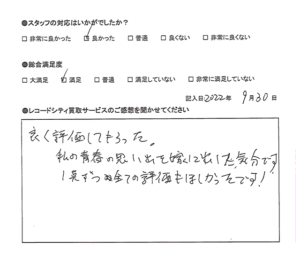 ●スタッフの対応はいかがでしたか？
□ 非常に良かった ☑ 良かった □ 普通 □ 良くない □ 非常に良くない
●総合満足度
□ 大満足 ☑ 満足 □ 普通 □ 満足していない □ 非常に満足していない
記入日 2022年 9月30日
●レコードシティ買取サービスのご感想を聞かせてください
良く評価してもらった。
私の青春の思い出を嫁に出した気分です
1点ずつの全ての評価もほしかったです!